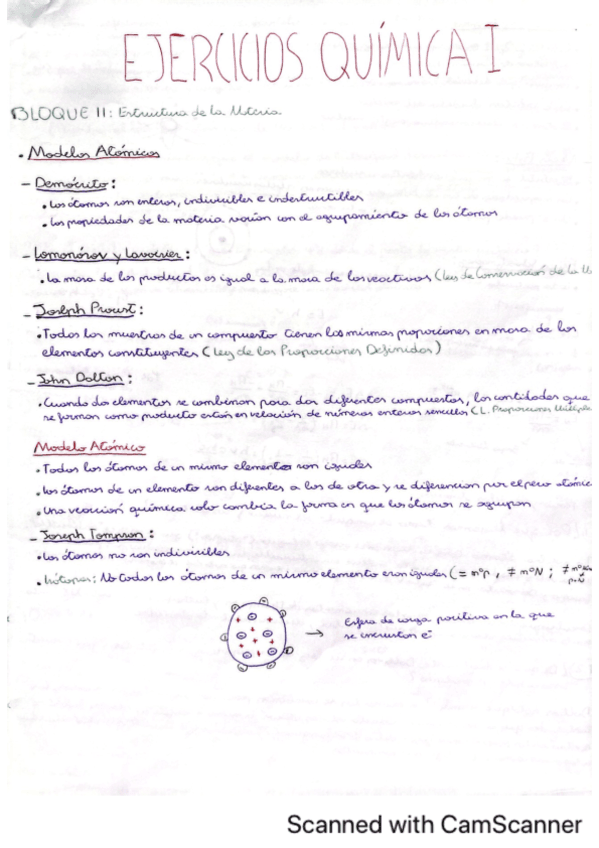 EJERCICIOS QUÍMICA I
BLOQUE II: Estructura de la Materia.
• Modelos Atómicos
- Demócrito:
• Los átomos son enteros, indivisibles e indestructibles
• Las propiedades de la materia varían con el agrupamiento de los átomos
- Lomonósov y Lavoisier:
• La masa de los productos es igual a la masa de los reactivos (Ley de Conservación de la
- Joseph Proust:
• Todas las muestras de un compuesto tienen las mismas proporciones en masa de los
elementos constituyentes (Ley de las Proporciones Definidas)
- John Dalton:
• Cuando dos elementos se combinan para dos diferentes compuestos, las cantidades que
se forman como producto están en relación de números enteros sencillos (L. Proporciones
Modelo Atómico
• Todos los átomos de un mismo elemento son iguales
• Los átomos de un elemento son diferentes a los de otro y se diferencian por el peso
• Una reacción química solo cambia la forma en que los átomos se agrupan
- Joseph Tompson:
• Los átomos no son indivisibles
• Isótopos: No todos los átomos de un mismo elemento eran iguales (= nºp, ≠ nºN;
→ Esfera de carga positiva en la que
se incrustan e⁻
Scanned with CamScanner